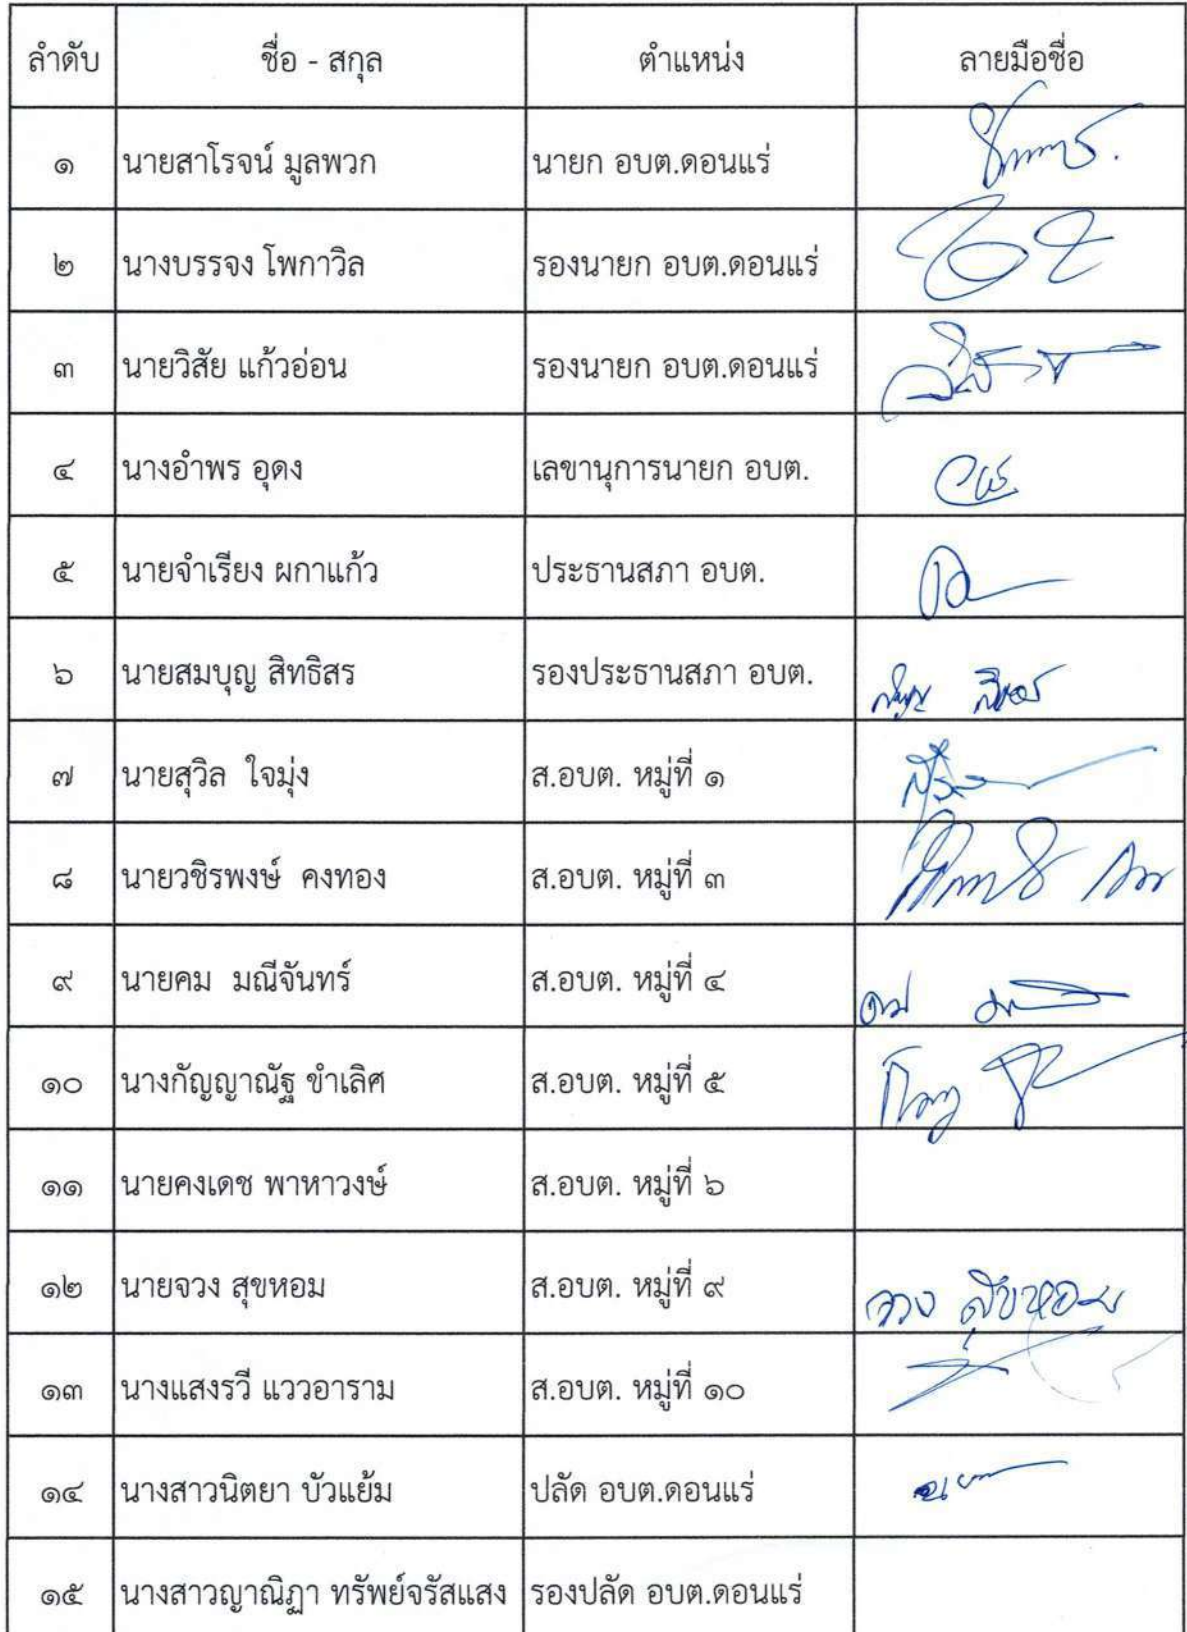 ลำดับ ชื่อ - สกุล ตำแหน่ง ลายมือชื่อ
๑ นายสาโรจน์ มูลพวก นายก อบต.ดอนแร่
๒ นางบรรจง โพกาวิล รองนายก อบต.ดอนแร่
๓ นายวิสัย แก้วอ่อน รองนายก อบต.ดอนแร่
๔ นางอำพร อุดง เลขานุการนายก อบต.
๕ นายจำเรียง ผกาแก้ว ประธานสภา อบต.
๖ นายสมบุญ สิทธิสร รองประธานสภา อบต.
๗ นายสุวิล ใจมุ่ง ส.อบต. หมู่ที่ ๑
๘ นายวชิรพงษ์ คงทอง ส.อบต. หมู่ที่ ๓
๙ นายคม มณีจันทร์ ส.อบต. หมู่ที่ ๔
๑๐ นางกัญญาณัฐ ขำเลิศ ส.อบต. หมู่ที่ ๕
๑๑ นายคงเดช พาหาวงษ์ ส.อบต. หมู่ที่ ๖
๑๒ นายจวง สุขหอม ส.อบต. หมู่ที่ ๙ จวง สุขหอม
๑๓ นางแสงรวี แววอาราม ส.อบต. หมู่ที่ ๑๐
๑๔ นางสาวนิตยา บัวแย้ม ปลัด อบต.ดอนแร่
๑๕ นางสาวญาณิฏา ทรัพย์จรัสแสง รองปลัด อบต.ดอนแร่